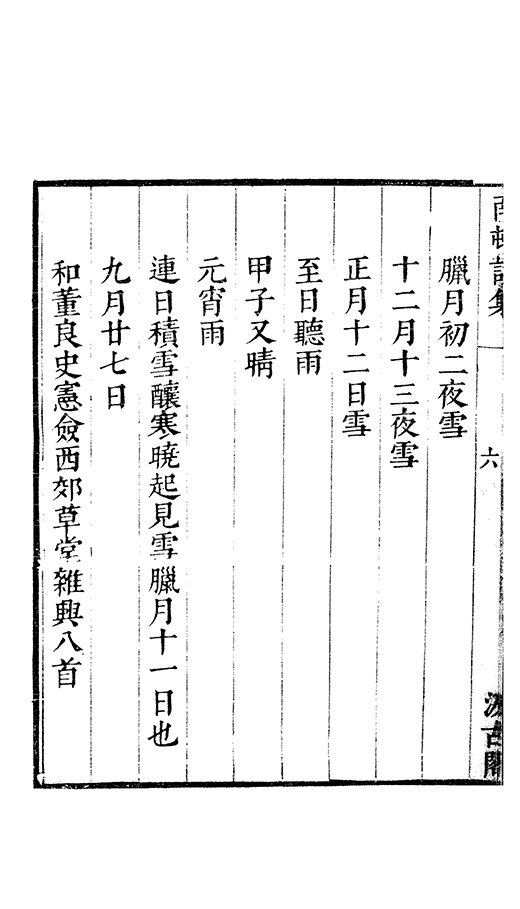 詩集
六
汲古閣
臘月初二夜雪
十二月十三夜雪
正月十二日雪
至日聽雨
甲子又晴
元宵雨
連日積雪釀寒曉起見雪臘月十一日也
九月廿七日
和董良史憲僉西郊草堂雜興八首